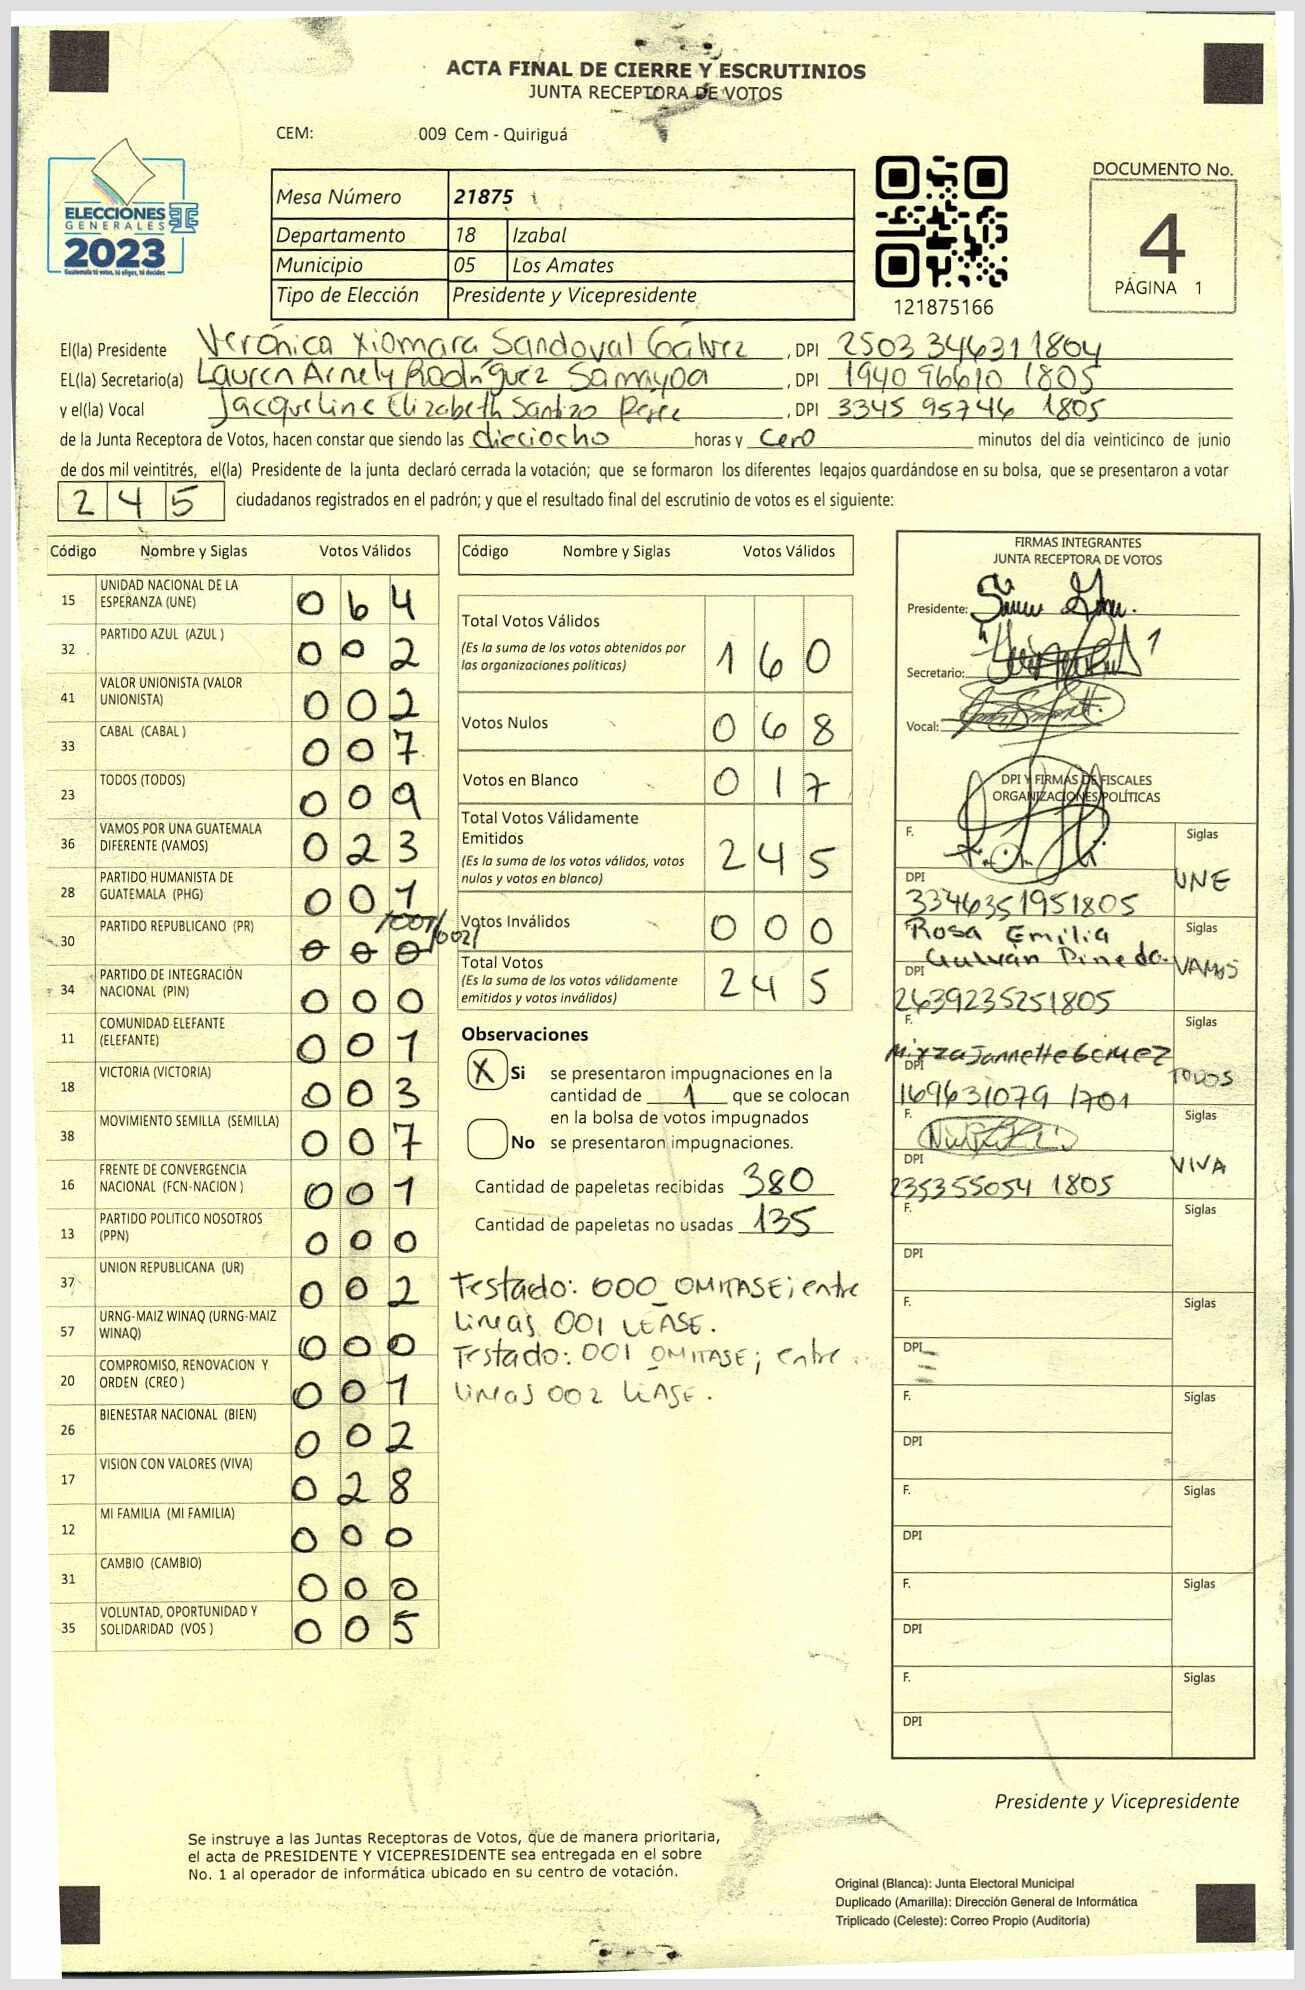 ACTA FINAL DE CIERRE Y ESCRUTINIOS
JUNTA RECEPTORA DE VOTOS
CEM: 009 Cem - Quiriguá
ELECCIONES
GENERALES
2023
Guatemala tú votas, tú eliges, tú decides
Mesa Número 21875
Departamento 18 Izabal
Municipio 05 Los Amates
Tipo de Elección Presidente y Vicepresidente
121875166
DOCUMENTO No.
4
PÁGINA 1
El(la) Presidente Verónica Xiomara Sandoval Gálvez , DPI 2503 34631 1804
EL(la) Secretario(a) Lauren Arnely Rodríguez Samayoa , DPI 1940 96610 1805
y el(la) Vocal Jacqueline Elizabeth Santizo , DPI 3345 95746 1805
de la Junta Receptora de Votos, hacen constar que siendo las dieciocho horas y cero minutos del día veinticinco de junio
de dos mil veintitrés, el(la) Presidente de la junta declaró cerrada la votación; que se formaron los diferentes legajos quardándose en su bolsa, que se presentaron a votar
245 ciudadanos registrados en el padrón; y que el resultado final del escrutinio de votos es el siguiente:
Código Nombre y Siglas Votos Válidos
15 UNIDAD NACIONAL DE LA ESPERANZA (UNE) 064
32 PARTIDO AZUL (AZUL ) 002
41 VALOR UNIONISTA (VALOR UNIONISTA) 002
33 CABAL (CABAL ) 007
23 TODOS (TODOS) 009
36 VAMOS POR UNA GUATEMALA DIFERENTE (VAMOS) 023
28 PARTIDO HUMANISTA DE GUATEMALA (PHG) 001
30 PARTIDO REPUBLICANO (PR) 000 /001/ /002/
34 PARTIDO DE INTEGRACIÓN NACIONAL (PIN) 000
11 COMUNIDAD ELEFANTE (ELEFANTE) 001
18 VICTORIA (VICTORIA) 003
38 MOVIMIENTO SEMILLA (SEMILLA) 007
16 FRENTE DE CONVERGENCIA NACIONAL (FCN-NACION ) 001
13 PARTIDO POLITICO NOSOTROS (PPN) 000
37 UNION REPUBLICANA (UR) 002
57 URNG-MAIZ WINAQ (URNG-MAIZ WINAQ) 000
20 COMPROMISO, RENOVACION Y ORDEN (CREO ) 001
26 BIENESTAR NACIONAL (BIEN) 002
17 VISION CON VALORES (VIVA) 028
12 MI FAMILIA (MI FAMILIA) 000
31 CAMBIO (CAMBIO) 000
35 VOLUNTAD, OPORTUNIDAD Y SOLIDARIDAD (VOS ) 005
Código Nombre y Siglas Votos Válidos
Total Votos Válidos 160
(Es la suma de los votos obtenidos por
las organizaciones políticas)
Votos Nulos 068
Votos en Blanco 017
Total Votos Válidamente
Emitidos 245
(Es la suma de los votos válidos, votos
nulos y votos en blanco)
Votos Inválidos 000
Total Votos 245
(Es la suma de los votos válidamente
emitidos y votos inválidos)
Observaciones
X Si se presentaron impugnaciones en la
cantidad de 1 que se colocan
en la bolsa de votos impugnados
No se presentaron impugnaciones.
Cantidad de papeletas recibidas 380
Cantidad de papeletas no usadas 135
Testado: 000 OMITASE; entre
lineas 001 LEASE.
Testado: 001 OMITASE; entre
lineas 002 LEASE.
FIRMAS INTEGRANTES
JUNTA RECEPTORA DE VOTOS
Presidente:
Secretario:
Vocal:
DPI Y FIRMAS DE FISCALES
ORGANIZACIONES POLÍTICAS
F. Siglas
UNE
DPI 3346351951805
F. Rosa Emilia Siglas
Galván Pineda VAMOS
DPI 2639235251805
F. Mirza Jannette Gómez Siglas
TODOS
DPI 169631079 1701
F. Siglas
VIVA
DPI 235355054 1805
F. Siglas
DPI
F. Siglas
DPI
F. Siglas
DPI
F. Siglas
DPI
F. Siglas
DPI
F. Siglas
DPI
Presidente y Vicepresidente
Se instruye a las Juntas Receptoras de Votos, que de manera prioritaria,
el acta de PRESIDENTE Y VICEPRESIDENTE sea entregada en el sobre
No. 1 al operador de informática ubicado en su centro de votación.
Original (Blanca): Junta Electoral Municipal
Duplicado (Amarilla): Dirección General de Informática
Triplicado (Celeste): Correo Propio (Auditoría)